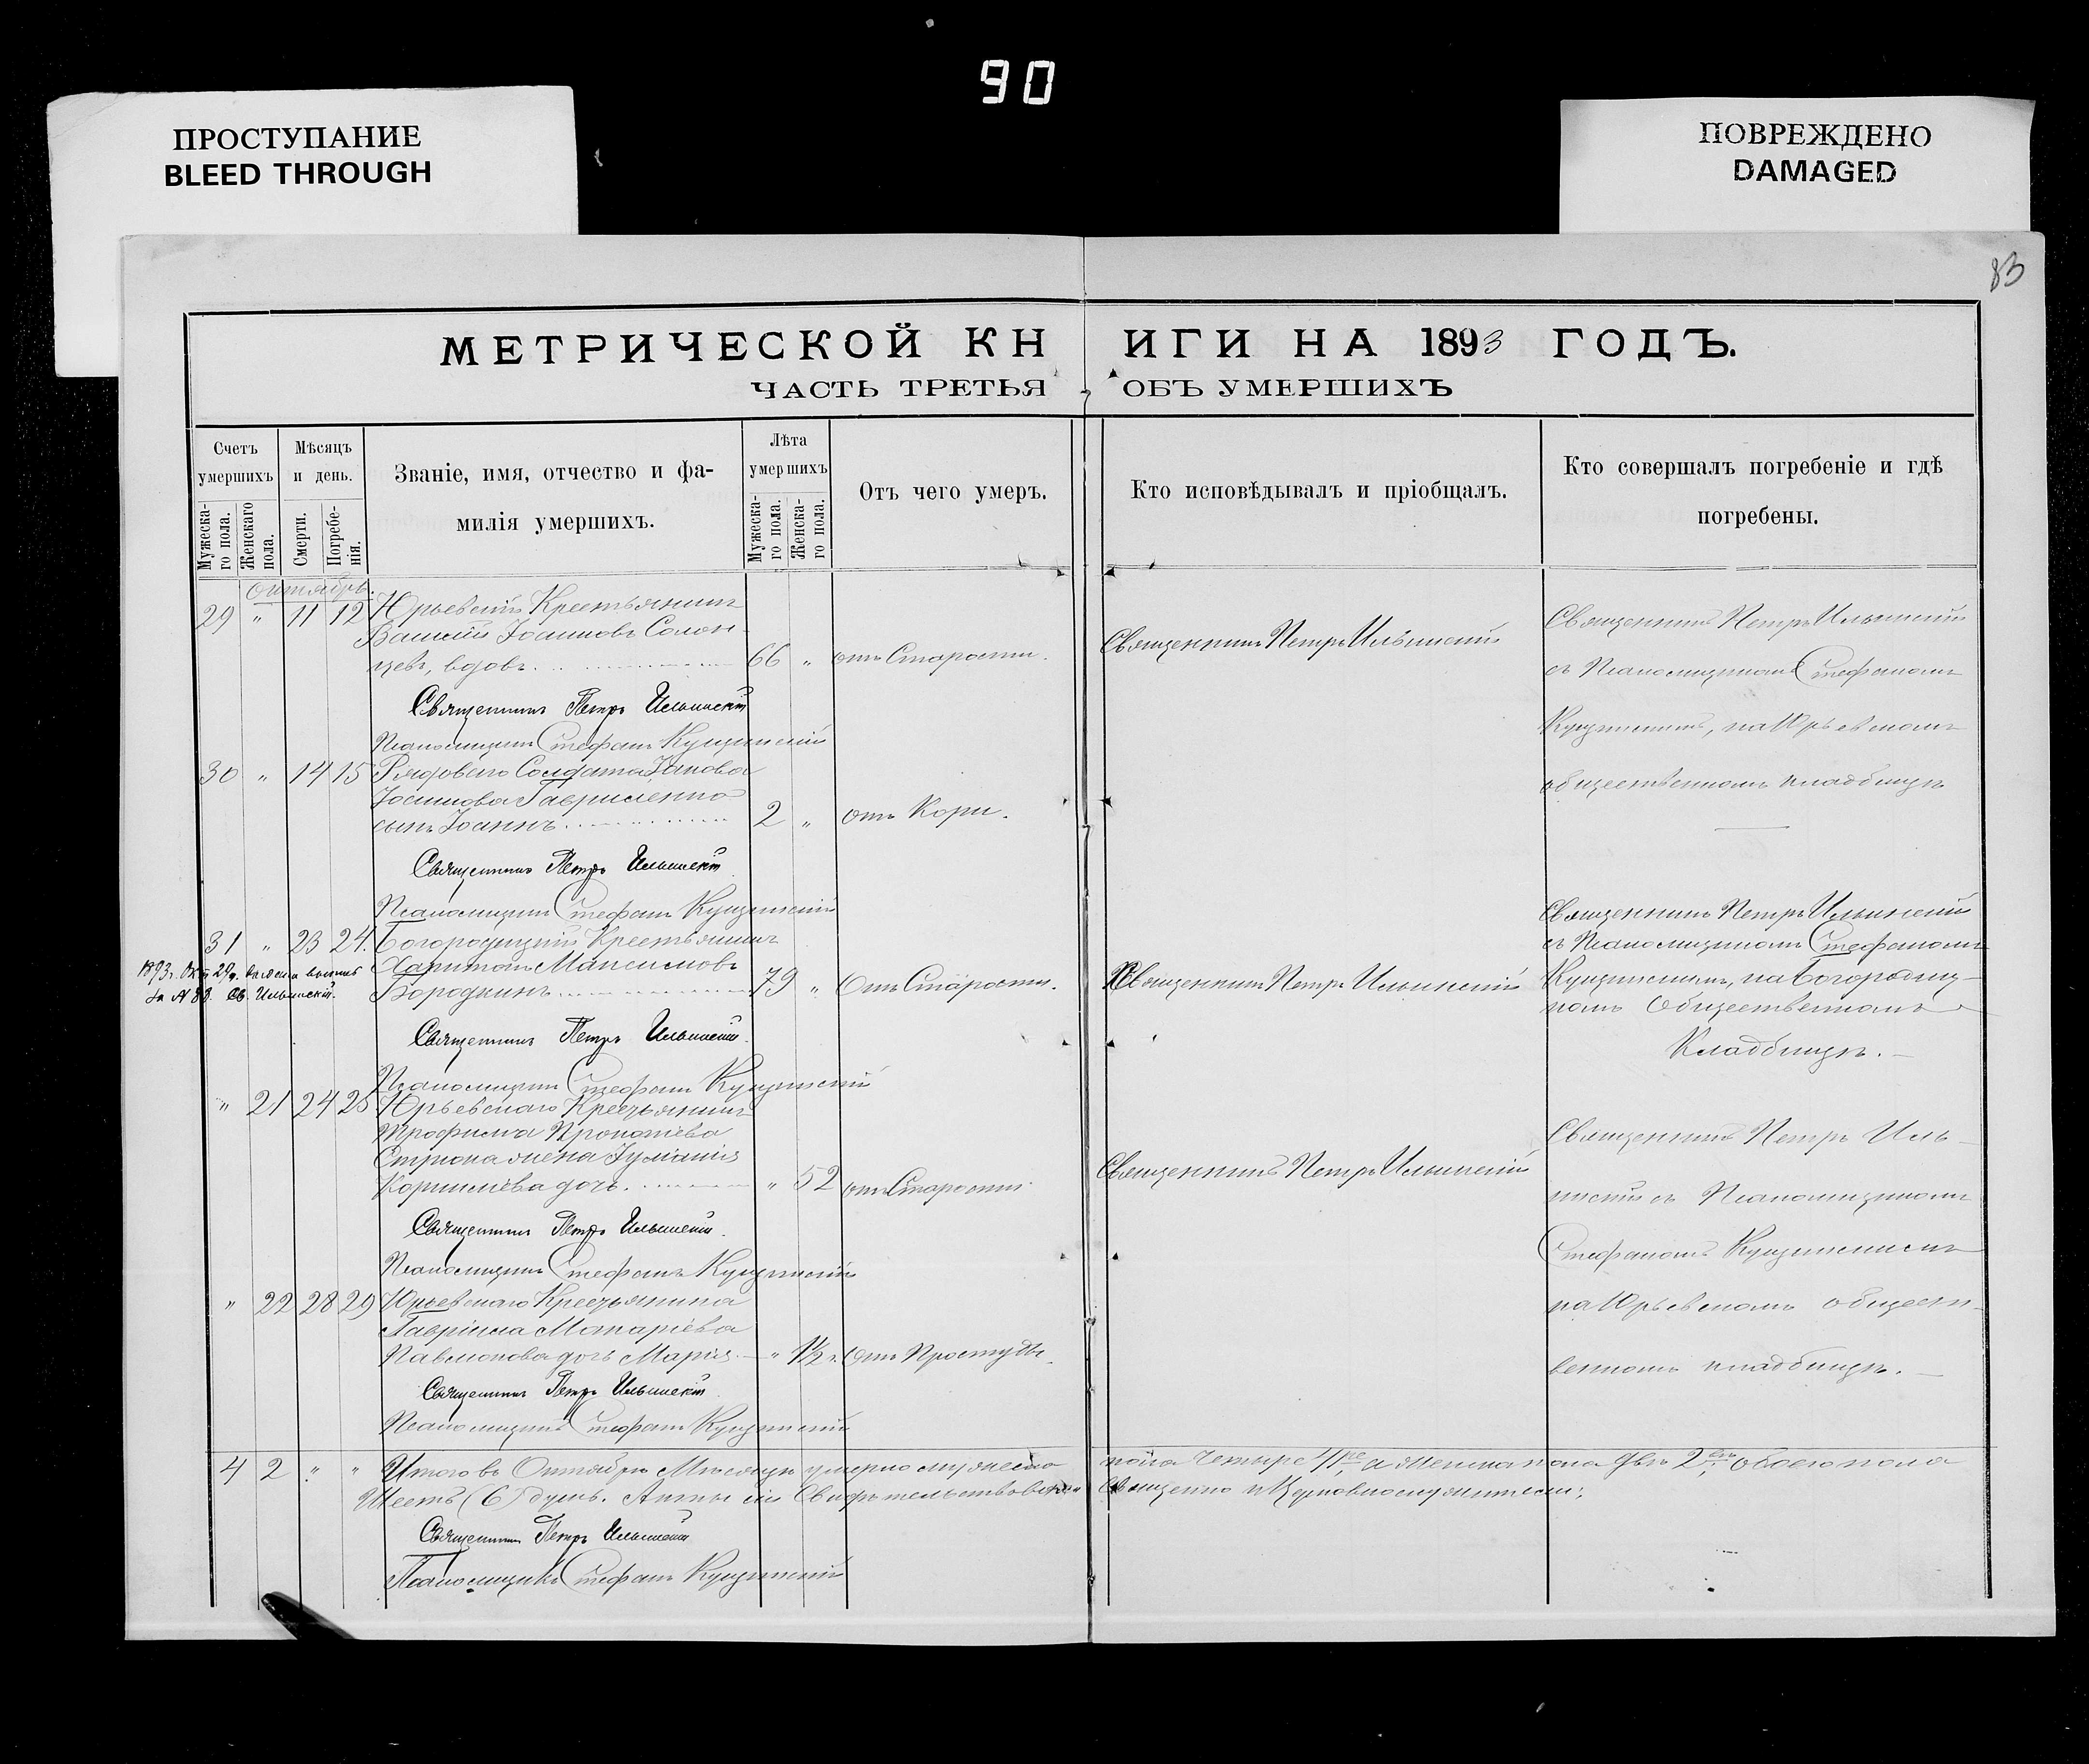 90
ПРОСТУПАНИЕ
BLEED THROUGH
ПОВРЕЖДЕНО
DAMAGED
83
МЕТРИЧЕСКОЙ КНИГИ НА 1893 ГОДЪ.
ЧАСТЬ ТРЕТЬЯ ОБЪ УМЕРШИХЪ
Счетъ умершихъ
Мужеска-го пола.
Женскаго пола.
Мѣсяцъ и день.
Смерти.
Погребе-нія.
Званіе, имя, отчество и фа-
милія умершихъ.
Лѣта умершихъ
Мужеска-го пола.
Женска-го пола.
Отъ чего умеръ.
Кто исповѣдывалъ и пріобщалъ.
Кто совершалъ погребеніе и гдѣ
погребены.
Октябрь.
29 " 11 12 Юрьевскій Крестьянинъ
Іоанновъ Солон-
цевъ, вдовъ. 66 " отъ Старости.
Священникъ Петръ Ильинскій
Священникъ Петръ Ильинскій
съ Псаломщикомъ Стефаномъ
на Юрьевскомъ
общественномъ кладбищѣ
Священникъ Петръ Ильинскій
Псаломщикъ Стефанъ
30 " 14 15 Рядоваго Солдата
Іоаннова Гавриленко
сынъ Іоаннъ. 2 " отъ Кори.
Священникъ Петръ Ильинскій
Псаломщикъ Стефанъ
31 " 23 24. Богородицкій Крестьянинъ
Харитонъ Максимовъ
Бородкинъ 79 " Отъ Старости.
1893 г. Окт. 29 д.
за № 88. Св. Ильинскій.
Священникъ Петръ Ильинскій
Священникъ Петръ Ильинскій
съ Псаломщикомъ Стефаномъ
на Богородиц-
комъ Общественномъ
Кладбищѣ.
Священникъ Петръ Ильинскій
Псаломщикъ Стефанъ
" 21 24 25 Юрьевскаго
Трофима Прокопіева
жена Іуліанія
Корниліева дочь. " 52 отъ Старости
Священникъ Петръ Ильинскій
Священникъ Петръ Иль-
инскій съ Псаломщикомъ
Стефаномъ
на Юрьевскомъ общест-
венномъ кладбищѣ.
Священникъ Петръ Ильинскій
Псаломщикъ Стефанъ
" 22 28 29 Юрьевскаго Крестьянина
Гавріила Макаріева
дочь Марія. " 1½ г. Отъ Простуды.
Священникъ Петръ Ильинскій
Псаломщикъ Стефанъ
4 2 " " Итого въ Октябрѣ Мѣсяцѣ умерло мужеска пола Четыре 4, а женска пола двѣ 2, обоего пола
Шесть (6) душъ. Священно и Церковнослужители:
Священникъ Петръ Ильинскій
Псаломщикъ Стефанъ